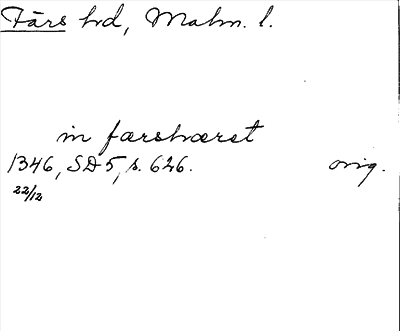 Färs hd, Malm. l.
in færshæret
1346, SD 5, s. 626. orig.
22/12